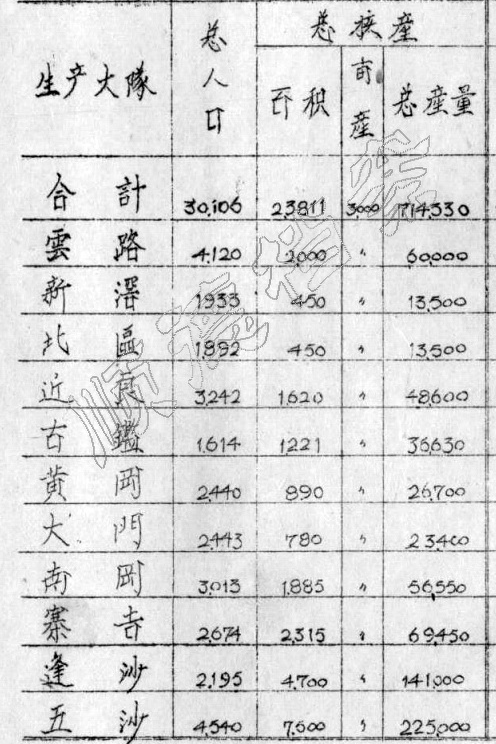 生产大隊 总人口 总核産
面积 亩産 总産量
合計 30,106 23811 3000 714,330
雲路 4,120 2,000 〃 60,000
新滘 1933 450 〃 13,500
北區 1,892 450 〃 13,500
近良 3,242 1,620 〃 48,600
古鑑 1,614 1221 〃 36,630
黄岡 2,440 890 〃 26,700
大門 2,443 780 〃 23,400
南岡 3,013 1,885 〃 56,550
寨吉 2,674 2,315 〃 69,450
逢沙 2,195 4,700 〃 141,000
五沙 4,540 7,500 〃 225,000
顺德档案